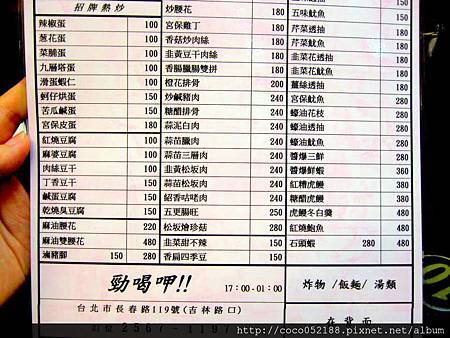 招牌熱炒
辣椒蛋 100
葱花蛋 100
菜脯蛋 100
九層塔蛋 100
滑蛋蝦仁 100
蚵仔烘蛋 150
苦瓜鹹蛋 150
宮保皮蛋 180
紅燒豆腐 100
麻婆豆腐 100
肉絲豆干 100
丁香豆干 150
鹹蛋豆腐 150
乾燒臭豆腐 150
麻油腰花 220
麻油雙腰花 480
滷豬腳 150 280
炒腰花 180
宮保雞丁 180
香菇炒肉絲 180
韭黃豆干肉絲 180
香腸臘腸雙拼 180
橙花排骨 200
炒鹹豬肉 240
糖醋排骨 240
蒜泥白肉 240
蒜苗臘肉 240
蒜苗三層肉 240
韭黃松坂肉 240
蒜苗松坂肉 240
紹香咕咾肉 240
五更腸旺 250
松坂燴珍菇 280
韭菜甜不辣 150
香扁四季豆 150
150
五味魷魚 180
芹菜透抽 180
芹菜魷魚 180
韭菜花透抽 180
韭菜花魷魚 180
薑絲透抽 180
宮保魷魚 280
蠔油花枝 280
蠔油透抽 280
醬爆三鮮 280
醬爆鮮蝦 360
紅糟虎鰻 380
糖醋虎鰻 380
虎鰻冬白羹 480
紅燒鮑魚 480
石頭蝦 280 480
勁喝呷!! 17:00-01:00
台北市長春路119號(吉林路口)
訂位 2567-1197
炸物/飯麵/湯類
在背面
http://coco052188.pixnet.net/album